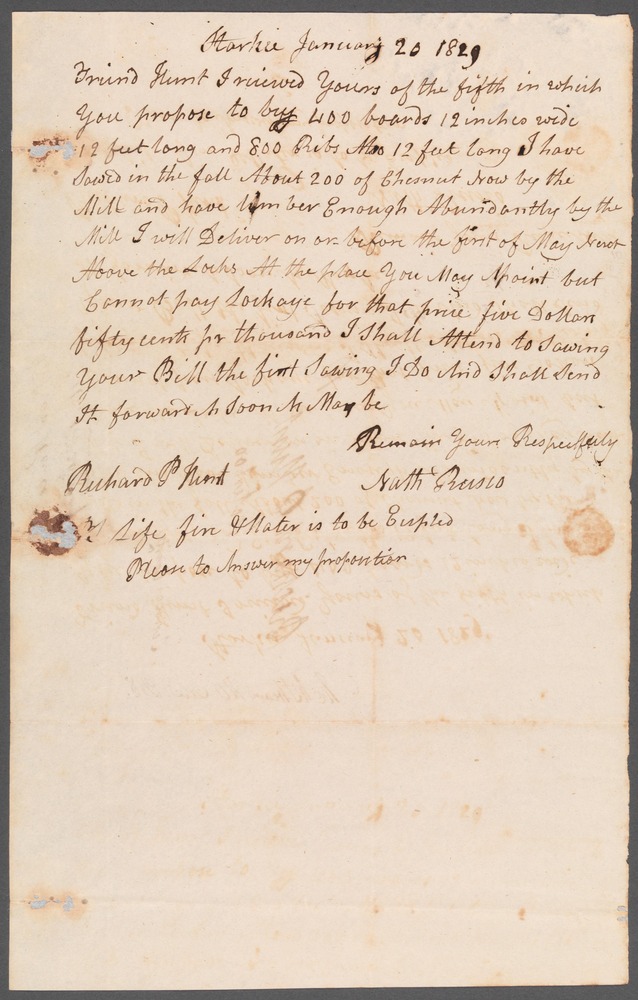 Starkie January 20 1829
Friend Hunt I reieved Yours of the fifth in which
You propose to buy 400 boards 12 inches wide
12 feet long and 800 Ribs Also 12 feet long I have
Sawed in the fall About 200 of Chesnut Now by the
Mill and have lumber Enough Abundantly by the
Mill I will Deliver on or before the first of May Next
Above the Locks At the place You May Apoint but
Cannot pay Lockage for that price five Dollars
fifty cents pr thousand I Shall Attend to Sawing
Your Bill the first Sawing I Do And Shall Send
It forward As Soon As May be
Remain Yours Respectfuly
Richard P Hunt
Nathl
Life fire & Water is to be
Please to Answer my proposition